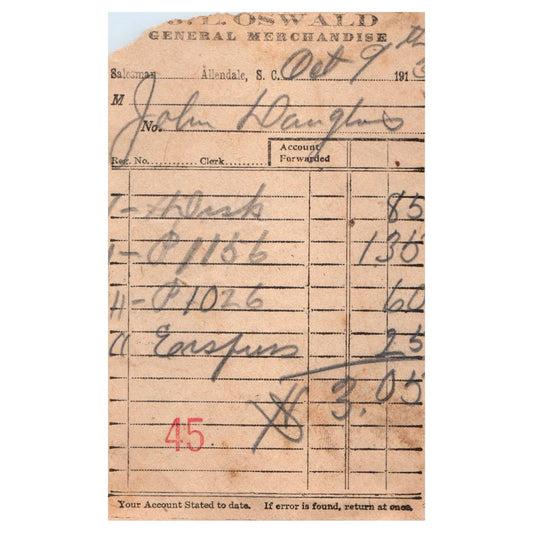 J. L. OSWALD
GENERAL MERCHANDISE
Salesman Allendale, S. C. Oct 9th 1913
M John Douglas
No.
Account
Forwarded
Reg. No. Clerk
Disk 85
P1156 135
P1026 60
25
3.05
45
Your Account Stated to date. If error is found, return at once.